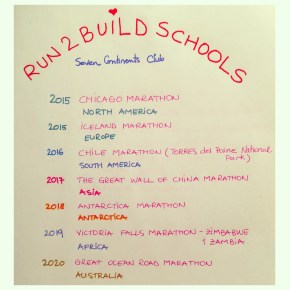 RUN 2 BUILD SCHOOLS
Seven Continents Club
2015 CHICAGO MARATHON
NORTH AMERICA
2015 ICELAND MARATHON
EUROPE
2016 CHILE MARATHON (TORRES del Paine National
Park)
SOUTH AMERICA
2017 THE GREAT WALL OF CHINA MARATHON
ASIA
2018 ANTARCTICA MARATHON
ANTARCTICA
2019 VICTORIA FALLS MARATHON - ZIMBABWE
AFRICA 1 ZAMBIA
2020 GREAT OCEAN ROAD MARATHON
AUSTRALIA